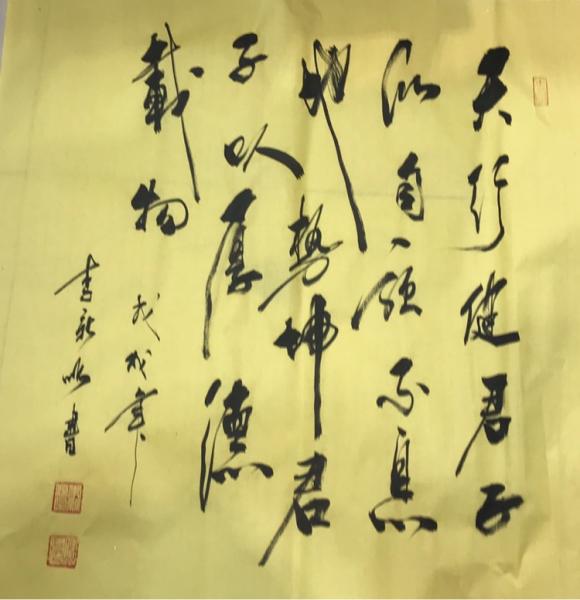 天行健君子
以自强不息
地势坤君
子以厚德
载物
戊戌年
李新 书